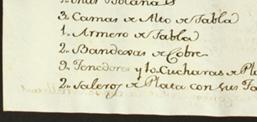 3. Camas de Alto de Tabla
1. Armero de Tabla
2. Bandexas de Cobre
9. Tenedores y 10 Cucharas de Pla
2. Saleros de Plata con sus Ta